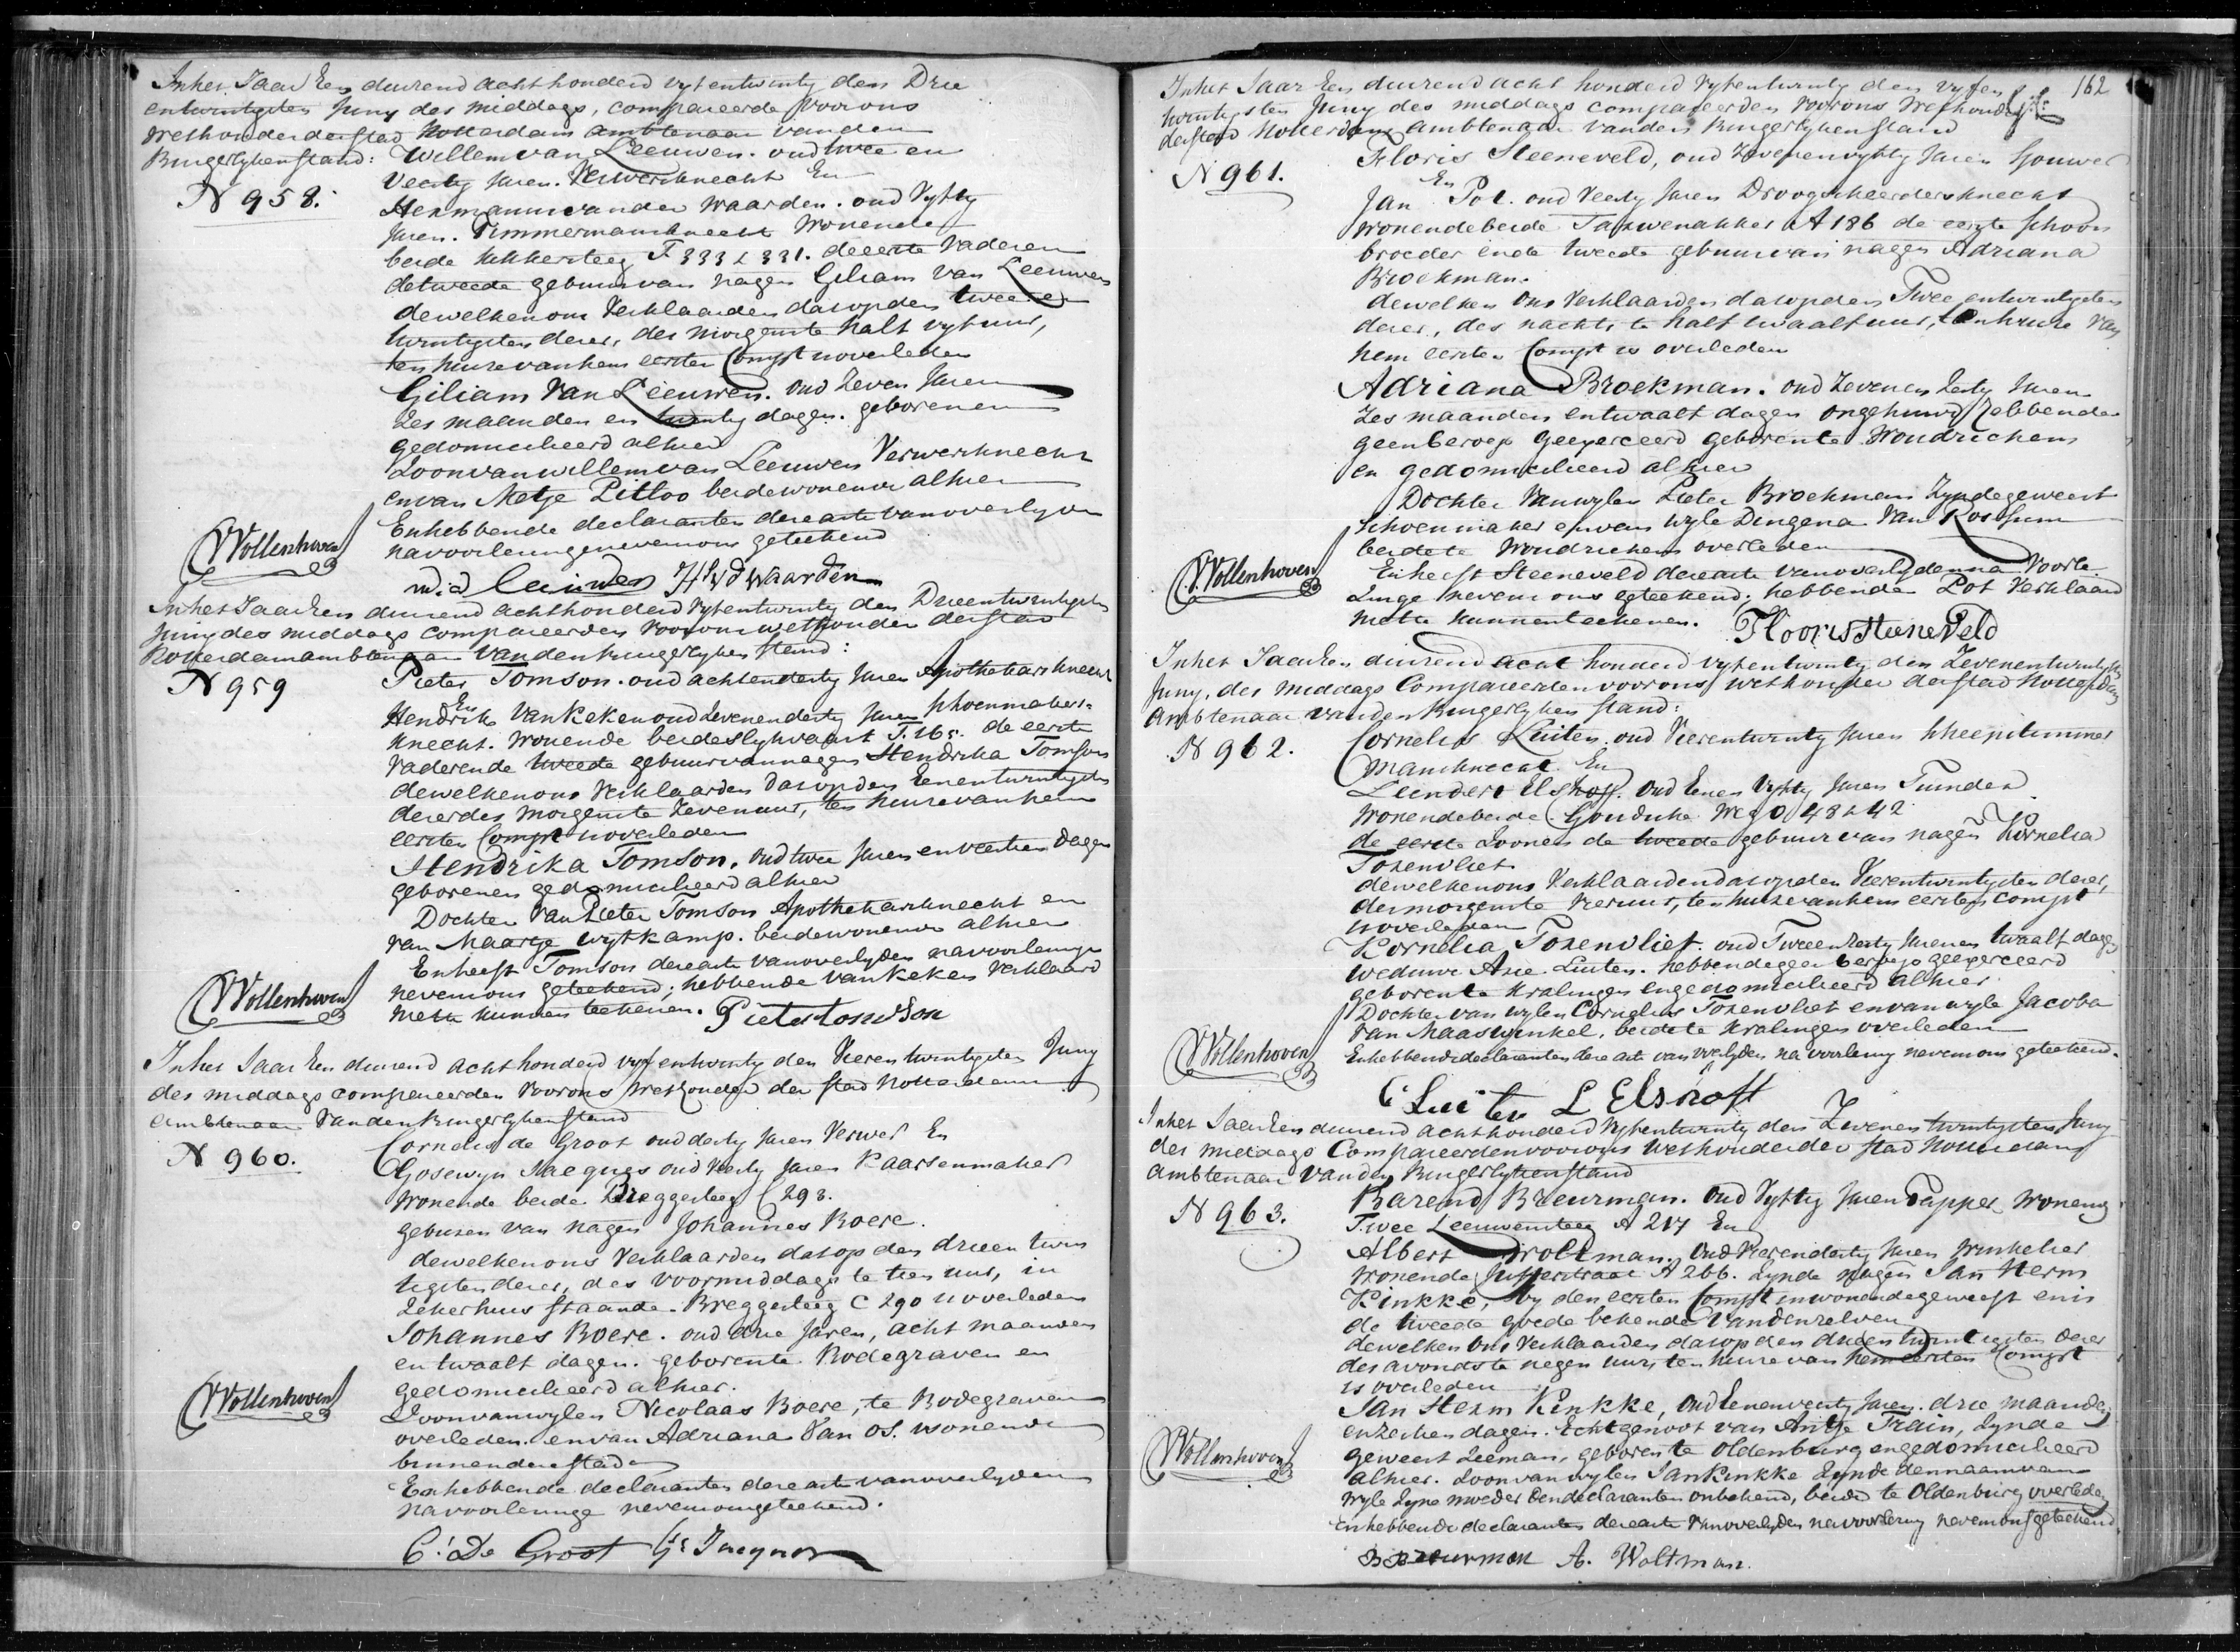 In het Jaar Een duizend achthonderd vyf en twintig den Drie
entwintigsten Juny des middags, compareerde voor ons
Wethouder der stad Rotterdam ambtenaar van den
Burgerlyken stand: Willem van Leeuwen. oud twee en
N 958.
Veertig Jaren. Verwersknecht En
Hermanus van der Waarden. oud Vyftig
Jaren. Timmermansknecht Wonende
beide Kikkersteeg F 333 & 331. de eerste Vader en
de tweede gebuur van nagen Giliam van Leeuwen
dewelken ons Verklaarden dat op den twee en
twintigsten dezer, des morgens te half vyf uur,
ten huize van hem eersten Compt is overleden
Giliam Van Leeuwen. oud Zeven Jaren
Zes maanden en twintig dagen. geboren en
gedomicilieerd alhier
Zoon van Willem van Leeuwen Verwersknecht
en van Metje Pitloo beide wonende alhier
VVollenhoven
En hebbende declaranten deze acte van overlyden
na voorlezinge nevens ons geteekend
W. v. Leeuwen H v d Waarden
In het Jaar Een duizend achthonderd Vyfentwintig den Drieentwintigsten
Juny des middags compareerden voor ons wethouder der stad
Rotterdam ambtenaar van den burgerlyken stand:
N 959
Pieter Tomson. oud achtendertig Jaren Apothekarsknecht
En
Hendrik Van Keken oud Zevenendertig Jaren schoenmakers
knecht. Wonende beide Slykvaart T. 165. de eerste
Vader en de tweede gebuur van nagen Hendrika Tomson
dewelken ons Verklaarden dat op den Eenentwintigsten
dezer des morgens te Zeven uur, ten huize van hem
eersten Compt is overleden
Hendrika Tomson. oud twee Jaren en veertien dagen
geboren en gedomicilieerd alhier
Dochter van Pieter Tomson Apothekarsknecht en
van Maartje Wytkamp. beide wonende alhier
En heeft Tomson deze acte van overlyden na voorlezinge
VVollenhoven
nevens ons geteekend; hebbende van Keken Verklaard
niet te kunnen teekenen. Pieter Tomson
In het Jaar Een duizend acht honderd vyf en twintig den Vieren twintigsten Juny
des middags compareerden voor ons Wethouder der stad Rotterdam
ambtenaar Van den burgerlyken stand
N 960.
Cornelis de Groot oud dertig Jaren Verwer En
Gosewyn Jacques oud Veertig Jaren Kaarsenmaker
Wonende beide Breggesteeg C 293.
gebuuren van nagen Johannes Boere.
dewelken ons Verklaarden dat op den drieen twin
tigsten dezer, des voormiddags te tien uur, in
Zeker huis staande Breggesteeg C 290 is overleden
Johannes Boere. oud drie Jaren, acht maanden
en twaalf dagen. geboren te Bodegraven en
gedomicilieerd alhier.
VVollenhoven
Zoon van wylen Nicolaas Boere, te Bodegraven
overleden. en van Adriana Van Os. wonende
binnen deze stad
En hebbende declaranten deze acte van overlyden
na voorlezinge nevens ons geteekend.
C: De Groot Gs Jacques
162
In het Jaar Een duizend acht honderd Vyfentwintig den vyfen
twintigsten Juny des middags compareerden voor ons Wethouder
der stad Rotterdam ambtenaar van den Burgerlyken stand
N 961.
Floris Steeneveld, oud Zevenenvyftig Jaren Sjouwer
En
Jan Pot. oud Veertig Jaren Droogscheerdersknecht
wonende beide Tarwenakker A 186 de eerste schoon
broeder en de tweede gebuur van nagen Adriana
Broekman.
dewelken ons Verklaarden dat op den Twee entwintigsten
dezer, des nachts te half twaalf uur, ten huize van
hem eersten Compt is overleden
Adriana Broekman. oud Zevenen Zestig Jaren
Zes maanden en twaalf dagen ongehuwd hebbende
geen beroep geexerceerd geboren te Woudrichem
en gedomicilieerd alhier
Dochter van wylen Pieter Broekman Zynde geweest
schoenmaker en van wyle Dingena Van Rossum
VVollenhoven
beide te Woudrichem overleden
En heeft Steeneveld deze acte van overlyden na Voorle
zinge nevens ons geteekend; hebbende Pot Verklaard
niet te kunnen teekenen. Floorus steeneveld
In het Jaar Een duizend acht honderd vyfentwintig den Zevenentwintigsten
Juny, des middags Compareerden voor ons Wethouder der stad Rotterdam
Ambtenaar van den Burgerlyken stand:
N 962.
Cornelis Luiten. oud Vierentwintig Jaren Scheepstimmer
manknecht. En
Leendert Elshoff. oud Eenen Vyftig Jaren Tuinder
Wonende beide Goudsche Weg O 48 & 42
de eerste Zoon en de tweede gebuur van nagen Kornelia
Tozenvliet
dewelken ons Verklaarden dat op den Vierentwintigsten dezer,
des morgens te vier uur, ten huize van hem eersten compt
is overleden
Kornelia Tozenvliet. oud Tweeenzestig Jaren en twaalf dagen
weduwe Arie Luiten. hebbende geen beroep geexerceerd
geboren te Kralingen en gedomicilieerd alhier
Dochter van wylen Cornelis Tozenvliet en van wyle Jacoba
van Maaswinkel, beide te Kralingen overleden
VVollenhoven
En hebbende declaranten deze acte van overlyden na voorlezing nevens ons geteekend.
C Luiten L Elshoff
In het Jaar Een duizend achthonderd Vyfentwintig den Zevenen twintigsten Juny
des middags Compareerden voor ons Wethouder der stad Rotterdam
ambtenaar van den Burgerlyken stand
N 963.
Barend Breurman. oud Vyftig Jaren Tapper wonende
Twee Leeuwensteeg A 217 En
Albert Woltman, oud Vierendertig Jaren Winkelier
Wonende Jufferstraat A 266. Zynde nagen Jan Herm
Kinkke, by den eersten Compt inwonende geweest en is
de tweede goede bekende van denzelven
dewelken ons Verklaarden dat op den drieen twintigsten dezer
des avonds te negen uur, ten huize van hem eersten Compt
is overleden
Jan Herm Kinkke, oud Eenenveertig Jaren. drie maanden
en zestien dagen. Echtgenoot van Antje Train, Zynde
VVollenhoven
geweest Zeeman, geboren te Oldenburg en gedomicilieerd
alhier. Zoon van wylen Jan Kinkke Zynde den naam van
wyle Zyne moeder den declaranten onbekend, beide te Oldenburg overleden
En hebbende declaranten deze acte van overlyden na voorlezing nevens ons geteekend
B Breurman A. Woltman.